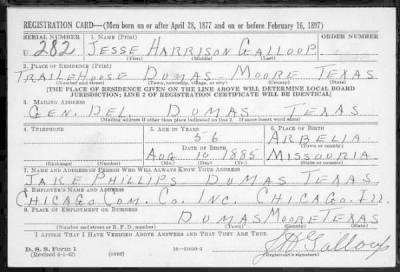 REGISTRATION CARD—(Men born on or after April 28, 1877 and on or before February 16, 1897)
SERIAL NUMBER 1. NAME (Print) ORDER NUMBER
U 282 JESSE HARRISON GALLOUP
(First) (Middle) (Last)
2. PLACE OF RESIDENCE (Print)
TRAILEHOUSE DUMAS MOORE TEXAS
(Number and street) (Town, township, village, or city) (County) (State)
[THE PLACE OF RESIDENCE GIVEN ON THE LINE ABOVE WILL DETERMINE LOCAL BOARD
JURISDICTION; LINE 2 OF REGISTRATION CERTIFICATE WILL BE IDENTICAL]
3. MAILING ADDRESS
GEN. DEL. DUMAS TEXAS
[Mailing address if other than place indicated on line 2. If same insert word same]
4. TELEPHONE 5. AGE IN YEARS 6. PLACE OF BIRTH
56 ARBELIA
DATE OF BIRTH (Town or county)
AUG 10 1885 MISSOURIA
(Exchange) (Number) (Mo.) (Day) (Yr.) (State or country)
7. NAME AND ADDRESS OF PERSON WHO WILL ALWAYS KNOW YOUR ADDRESS
JAKE PHILLIPS DUMAS TEXAS
8. EMPLOYER'S NAME AND ADDRESS
CHICAGO COM. CO. INC. CHICAGO. ILL.
9. PLACE OF EMPLOYMENT OR BUSINESS
DUMAS MOORE TEXAS
(Number and street or R. F. D. number) (Town) (County) (State)
I AFFIRM THAT I HAVE VERIFIED ABOVE ANSWERS AND THAT THEY ARE TRUE.
D. S. S. Form 1
(Revised 4-1-42) (over)
J H Galloup
(Registrant's signature)